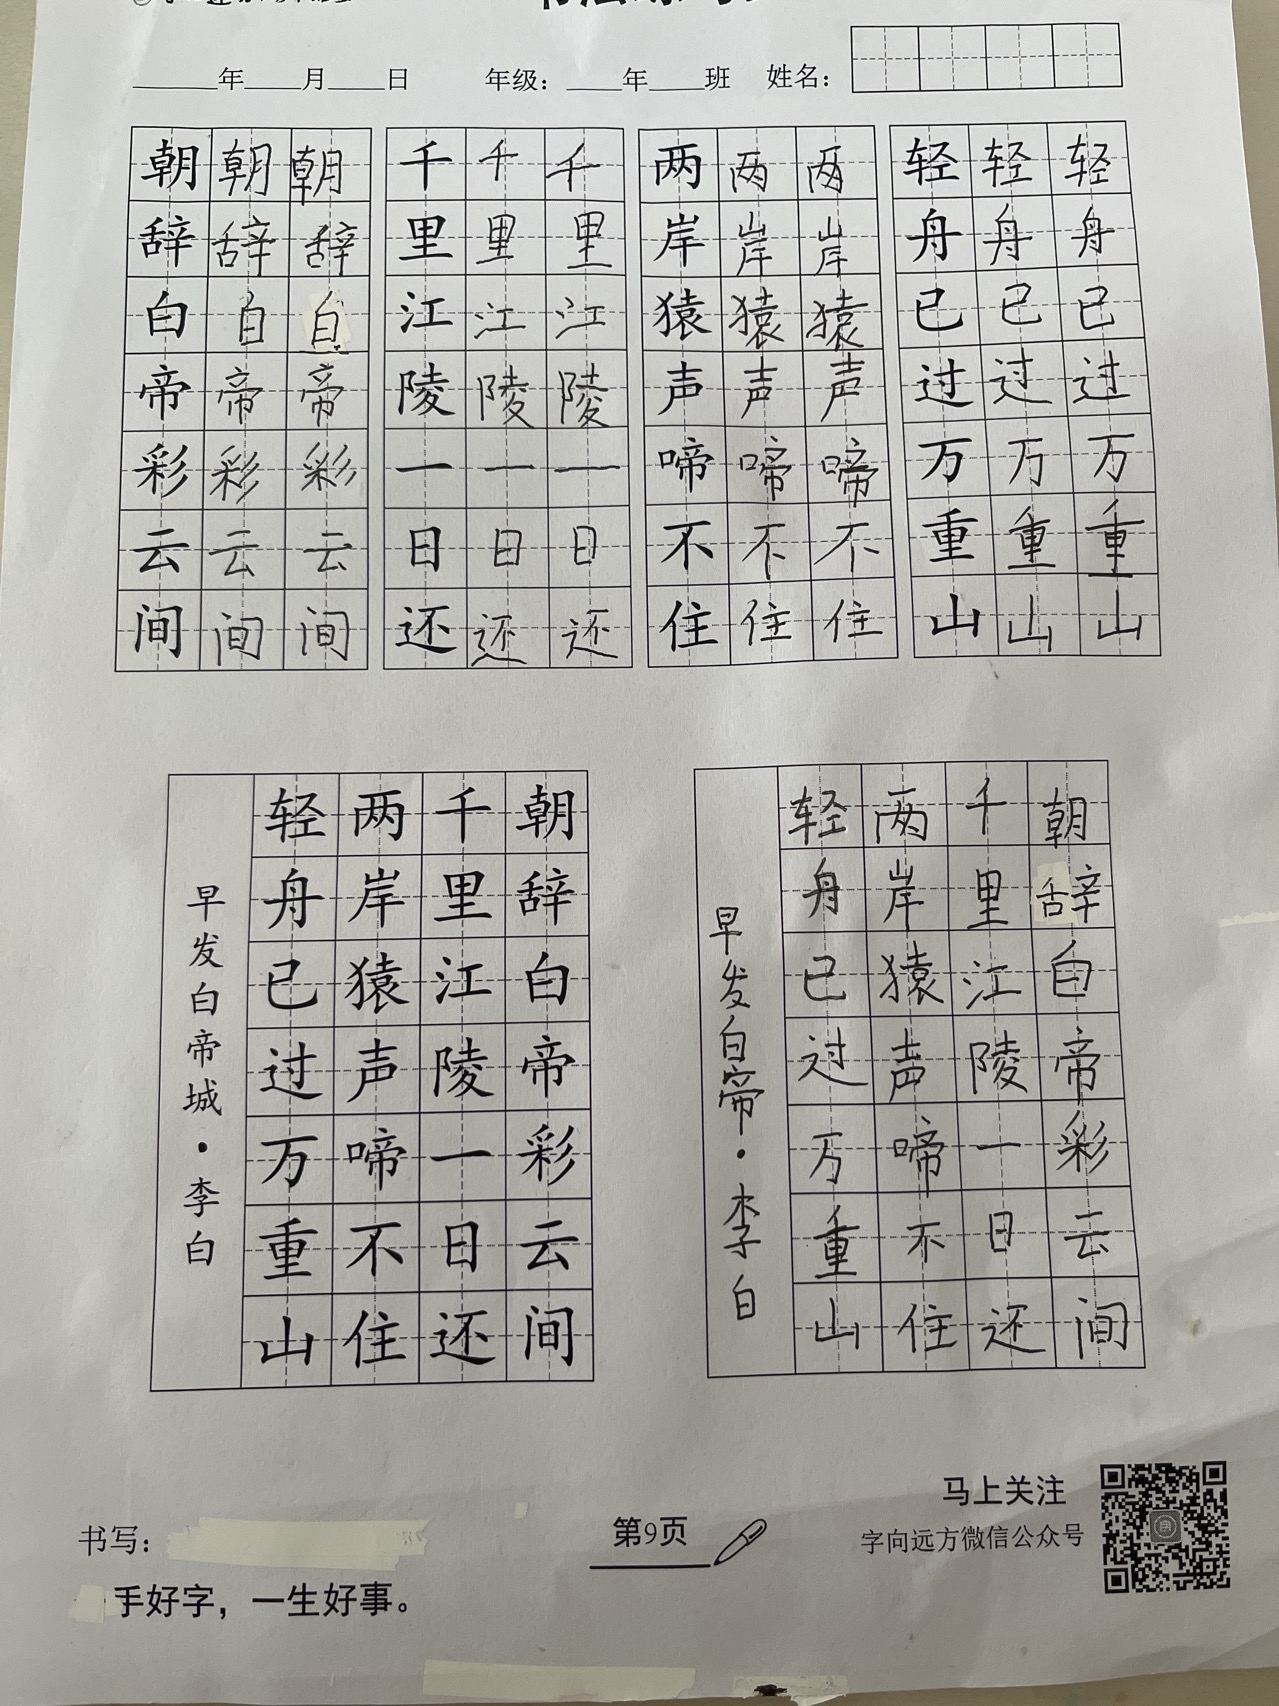 ____年____月____日 年级：____年____班 姓名：
朝朝朝 千千千 两两两 轻轻轻
辞辞辞 里里里 岸岸岸 舟舟舟
白白白 江江江 猿猿猿 已已已
帝帝帝 陵陵陵 声声声 过过过
彩彩彩 一一一 啼啼啼 万万万
云云云 日日日 不不不 重重重
间间间 还还还 住住住 山山山
朝辞白帝彩云间
千里江陵一日还
两岸猿声啼不住
轻舟已过万重山
早发白帝城·李白
朝辞白帝彩云间
千里江陵一日还
两岸猿声啼不住
轻舟已过万重山
早发白帝·李白
书写：
手好字，一生好事。
第9页
马上关注
字向远方微信公众号